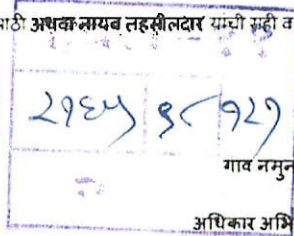 अथवा नायब तहसीलदार यांची सही व
२१६५ १८ १२१
गाव नमुन
अधिकार अभि